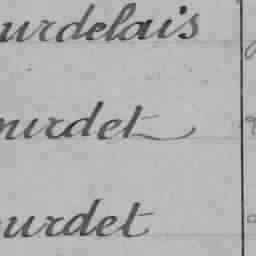 urdelais
ourdet
ourdet